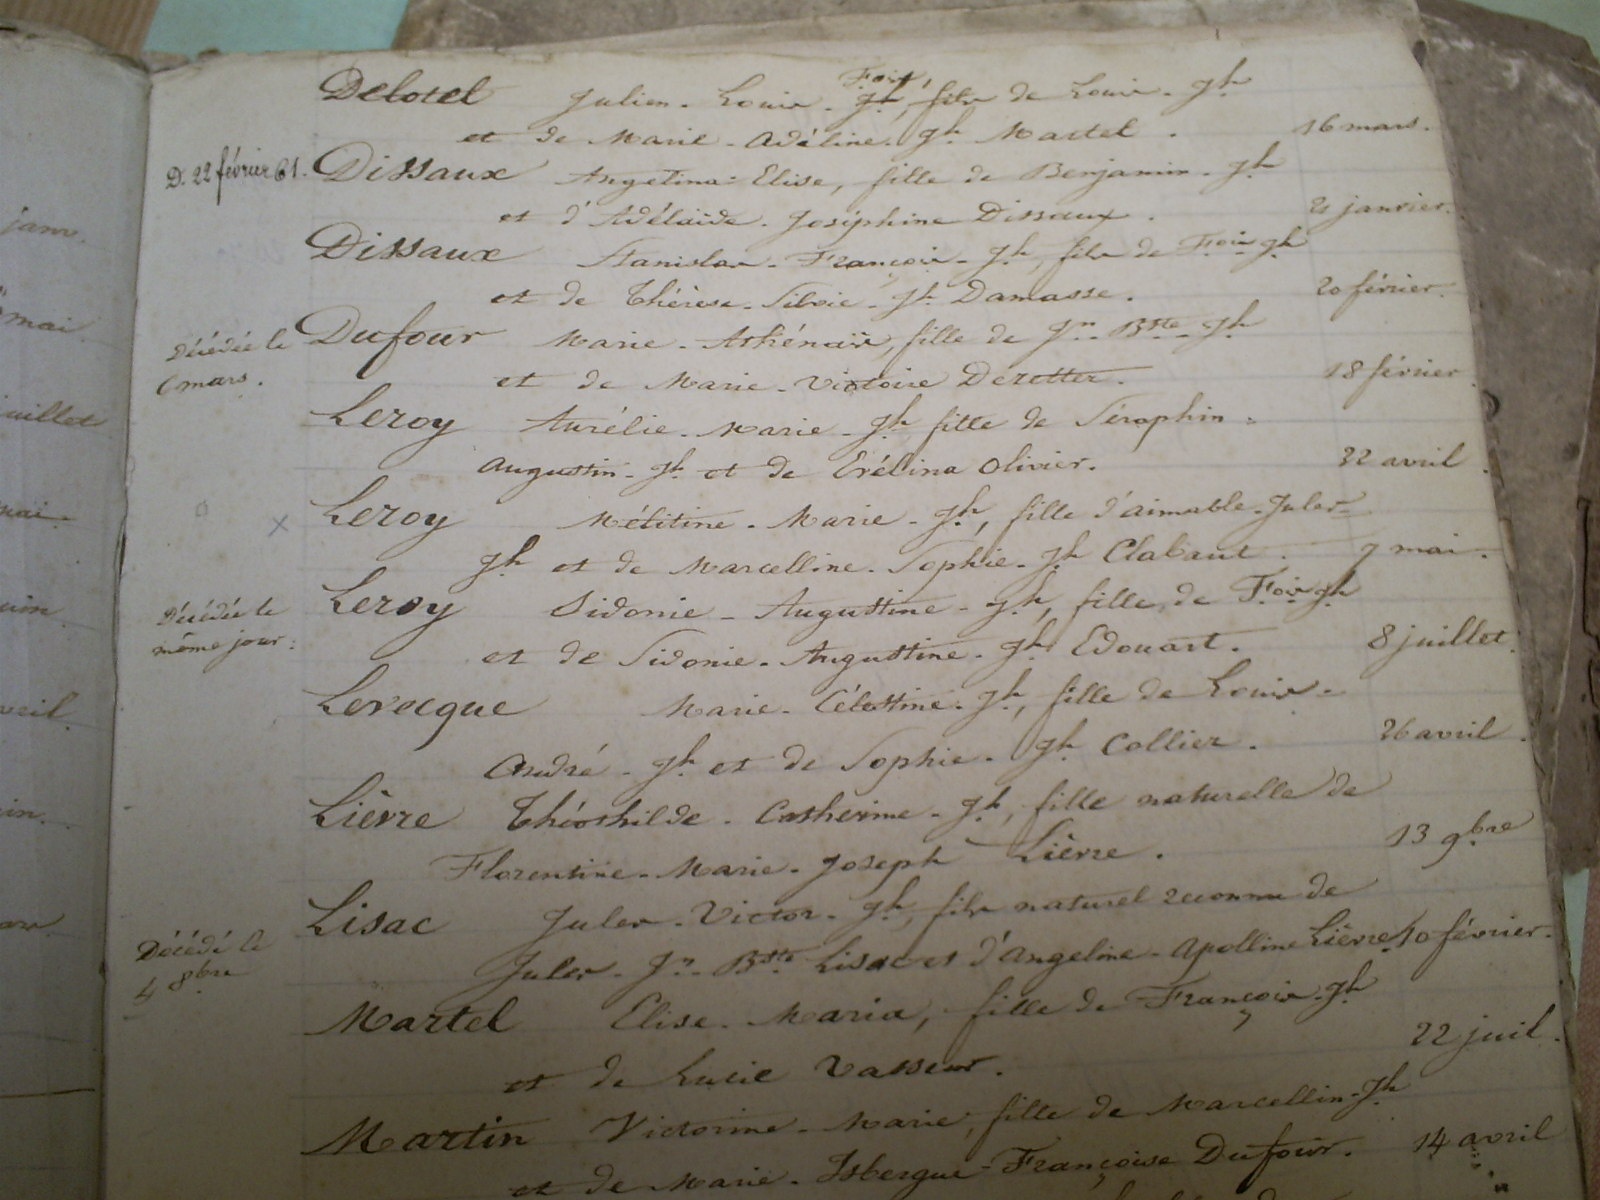 Delotel Julien - Louis - Fois, fils de Louis - Jh
et de Marie - Adéline - Jh Martel. 16 mars.
D. 22 février 61. Dissaux Angelina - Elise, fille de Benjamin - Jh
et d'Adélaïde - Joséphine Dissaux. 21 janvier.
Dissaux Stanislas - François - Jh, fils de Fois - Jh
et de Thérèse - Silvie - Jh Damasse. 20 février.
Décédée le Dufour Marie - Athénaïs, fille de Jn - Bste - Jh
6 mars. et de Marie - Victoire Deretter. 18 février
Leroy Aurélie - Marie - Jh, fille de Séraphin -
Augustin - Jh et de Evélina Olivier. 22 avril.
x Leroy Mélitine - Marie - Jh, fille d'aimable - Jules -
Jh et de Marcelline - Sophie - Jh Clabaut. 7 mai.
Décédée le Leroy Sidonie - Augustine - Jh, fille de Fois - Jh
même jour. et de Sidonie - Augustine - Jh Edouart. 8 juillet.
Levecque Marie - Célestine - Jh, fille de Louis -
André - Jh et de Sophie - Jh Collier. 26 avril.
Lièvre Théothilde - Catherine - Jh, fille naturelle de
Florentine - Marie - Joseph Lièvre. 13 9bre
Lisac Jules - Victor - Jh, fils naturel reconnu de
Décédé le Jules - Jn - Bste Lisac et d'Angeline - Apolline Lièvre 10 février.
4 8bre
Martel Elise - Maria, fille de François - Jh
et de Lucie Vasseur. 22 juil.
Martin Victorine - Marie, fille de Marcellin - Jh
et de Marie - Isbergue - Françoise Dufour. 14 avril
janv.
mai
juillet
mai
juin
avril